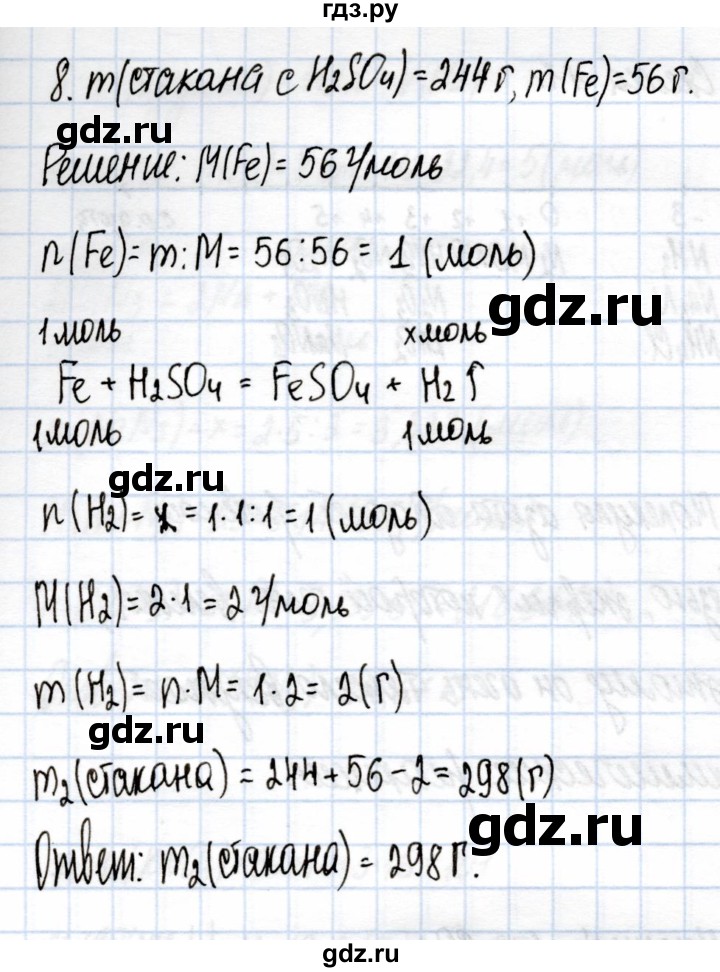 гдз.ру
8. m(стакана с H₂SO₄) = 244 г, m(Fe) = 56 г.
gdz.ru
Решение: M(Fe) = 56 г/моль
n(Fe) = m : M = 56 : 56 = 1 (моль)
gdz.ru
1 моль x моль
Fe + H₂SO₄ = FeSO₄ + H₂↑
1 моль 1 моль
gdz.ru
n(H₂) = x = 1·1:1 = 1 (моль)
M(H₂) = 2·1 = 2 г/моль
m(H₂) = n·M = 1·2 = 2(г)
gdz.ru
m₂(стакана) = 244 + 56 - 2 = 298(г)
gdz.ru
Ответ: m₂(стакана) = 298 г.
gdz.ru